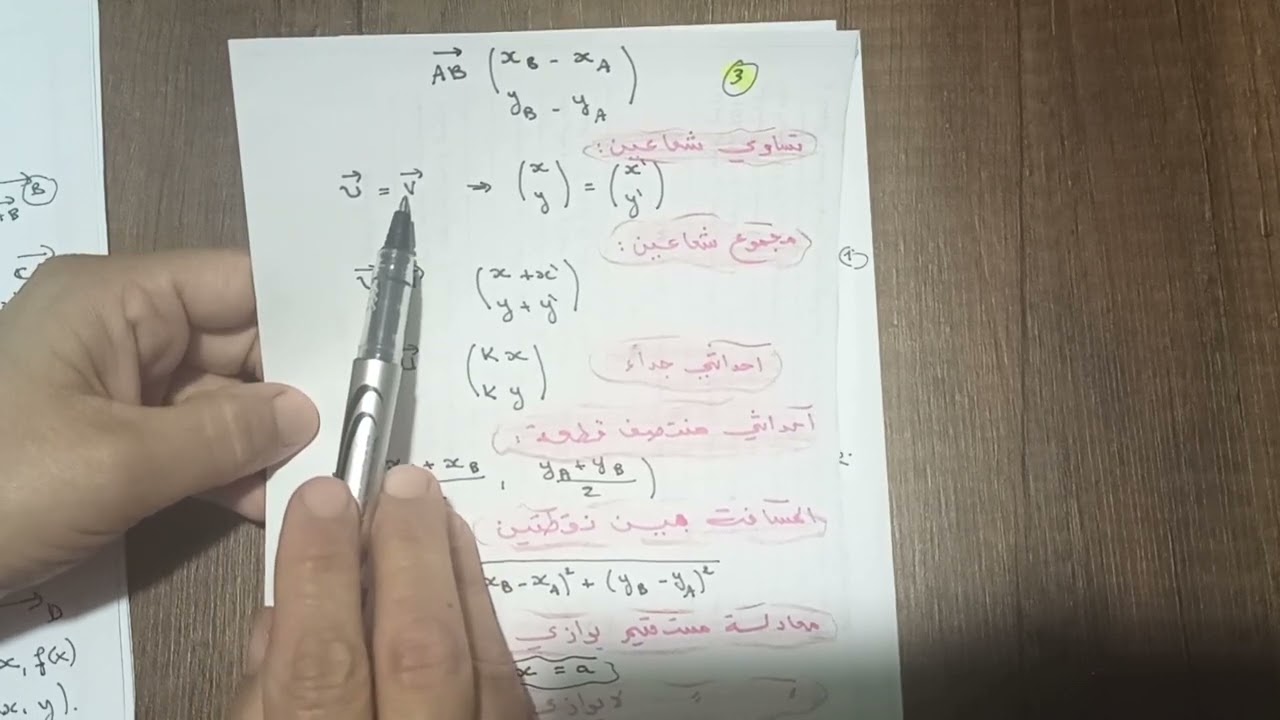 AB→ (x_B - x_A
y_B - y_A)
③
تساوي شعاعين:
u→ = v→ → (x y) = (x' y')
مجموع شعاعين:
(x + x'
y + y')
(Kx
Ky)
احداثي جداء
أحداثي منتصف قطعة:
+ x_B , (y_A + y_B)/2)
المسافة بين نقطتين
x_B - x_A)² + (y_B - y_A)²
معادلة مستقيم يوازي
x = a
لا يوازي
B
AB
C
D
x, f(x)
x, y).